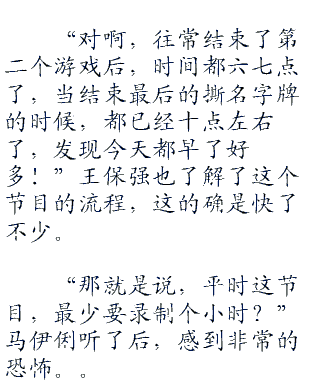 “对啊，往常结束了第
二个游戏后，时间都六七点
了，当结束最后的撕名字牌
的时候，都已经十点左右
了，发现今天都早了好
多！”王保强也了解了这个
节目的流程，这的确是快了
不少。
“那就是说，平时这节
目，最少要录制个小时？”
马伊俐听了后，感到非常的
恐怖。。